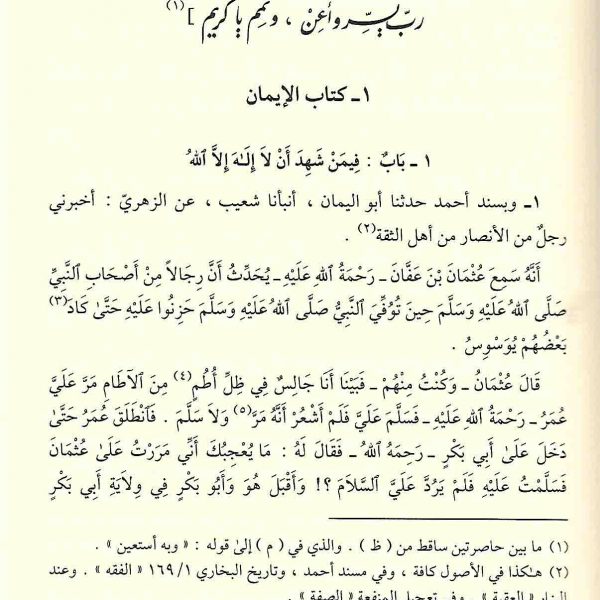 ربّ يسّر وأعِنْ ، وتمّم يا كريم ](١)
١ـ كتاب الإيمان
١ ـ بَابٌ : فِيمَنْ شَهِدَ أَنْ لَا إِلَـٰهَ إِلاَّ ٱللهُ
١ـ وبسند أحمد حدثنا أبو اليمان ، أنبأنا شعيب ، عن الزهريّ : أخبرني
رجلٌ من الأنصار من أهل الثقة(٢) .
أَنَّهُ سَمِعَ عُثْمَانَ بْنَ عَفَّانَ ـ رَحْمَةُ ٱللهِ عَلَيْهِ ـ يُحَدِّثُ أَنَّ رِجَالاً مِنْ أَصْحَابِ ٱلنَّبِيِّ
صَلَّى ٱللهُ عَلَيْهِ وَسَلَّمَ حِينَ تُوُفِّيَ ٱلنَّبِيُّ صَلَّى ٱللهُ عَلَيْهِ وَسَلَّمَ حَزِنُوا عَلَيْهِ حَتَّىٰ كَادَ(٣)
بَعْضُهُمْ يُوَسْوِسُ .
قَالَ عُثْمَانُ ـ وَكُنْتُ مِنْهُمْ ـ فَبَيْنَا أَنَا جَالِسٌ فِي ظِلِّ أُطُمٍ(٤) مِنَ ٱلآطَامِ مَرَّ عَلَيَّ
عُمَرُ ـ رَحْمَةُ ٱللهِ عَلَيْهِ ـ فَسَلَّمَ عَلَيَّ فَلَمْ أَشْعُرْ أَنَّهُ مَرَّ(٥) وَلاَ سَلَّمَ . فَٱنْطَلَقَ عُمَرُ حَتَّىٰ
دَخَلَ عَلَىٰ أَبِي بَكْرٍ ـ رَحِمَهُ ٱللهُ ـ فَقَالَ لَهُ : مَا يُعْجِبُكَ أَنِّي مَرَرْتُ عَلَىٰ عُثْمَانَ
فَسَلَّمْتُ عَلَيْهِ فَلَمْ يَرُدَّ عَلَيَّ ٱلسَّلاَمَ ؟! وَأَقْبَلَ هُوَ وَأَبُو بَكْرٍ فِي وِلاَيَةِ أَبِي بَكْرٍ
(١) ما بين حاصرتين ساقط من ( ظ ) . والذي في ( م ) إلىٰ قوله : « وبه أستعين » .
(٢) هـٰكذا في الأصول كافة ، وفي مسند أحمد ، وتاريخ البخاري ١/ ١٦٩ « الفقه » . وعند
البزار « العقبة » ، وفي تعجيل المنفعة « الصفة » .